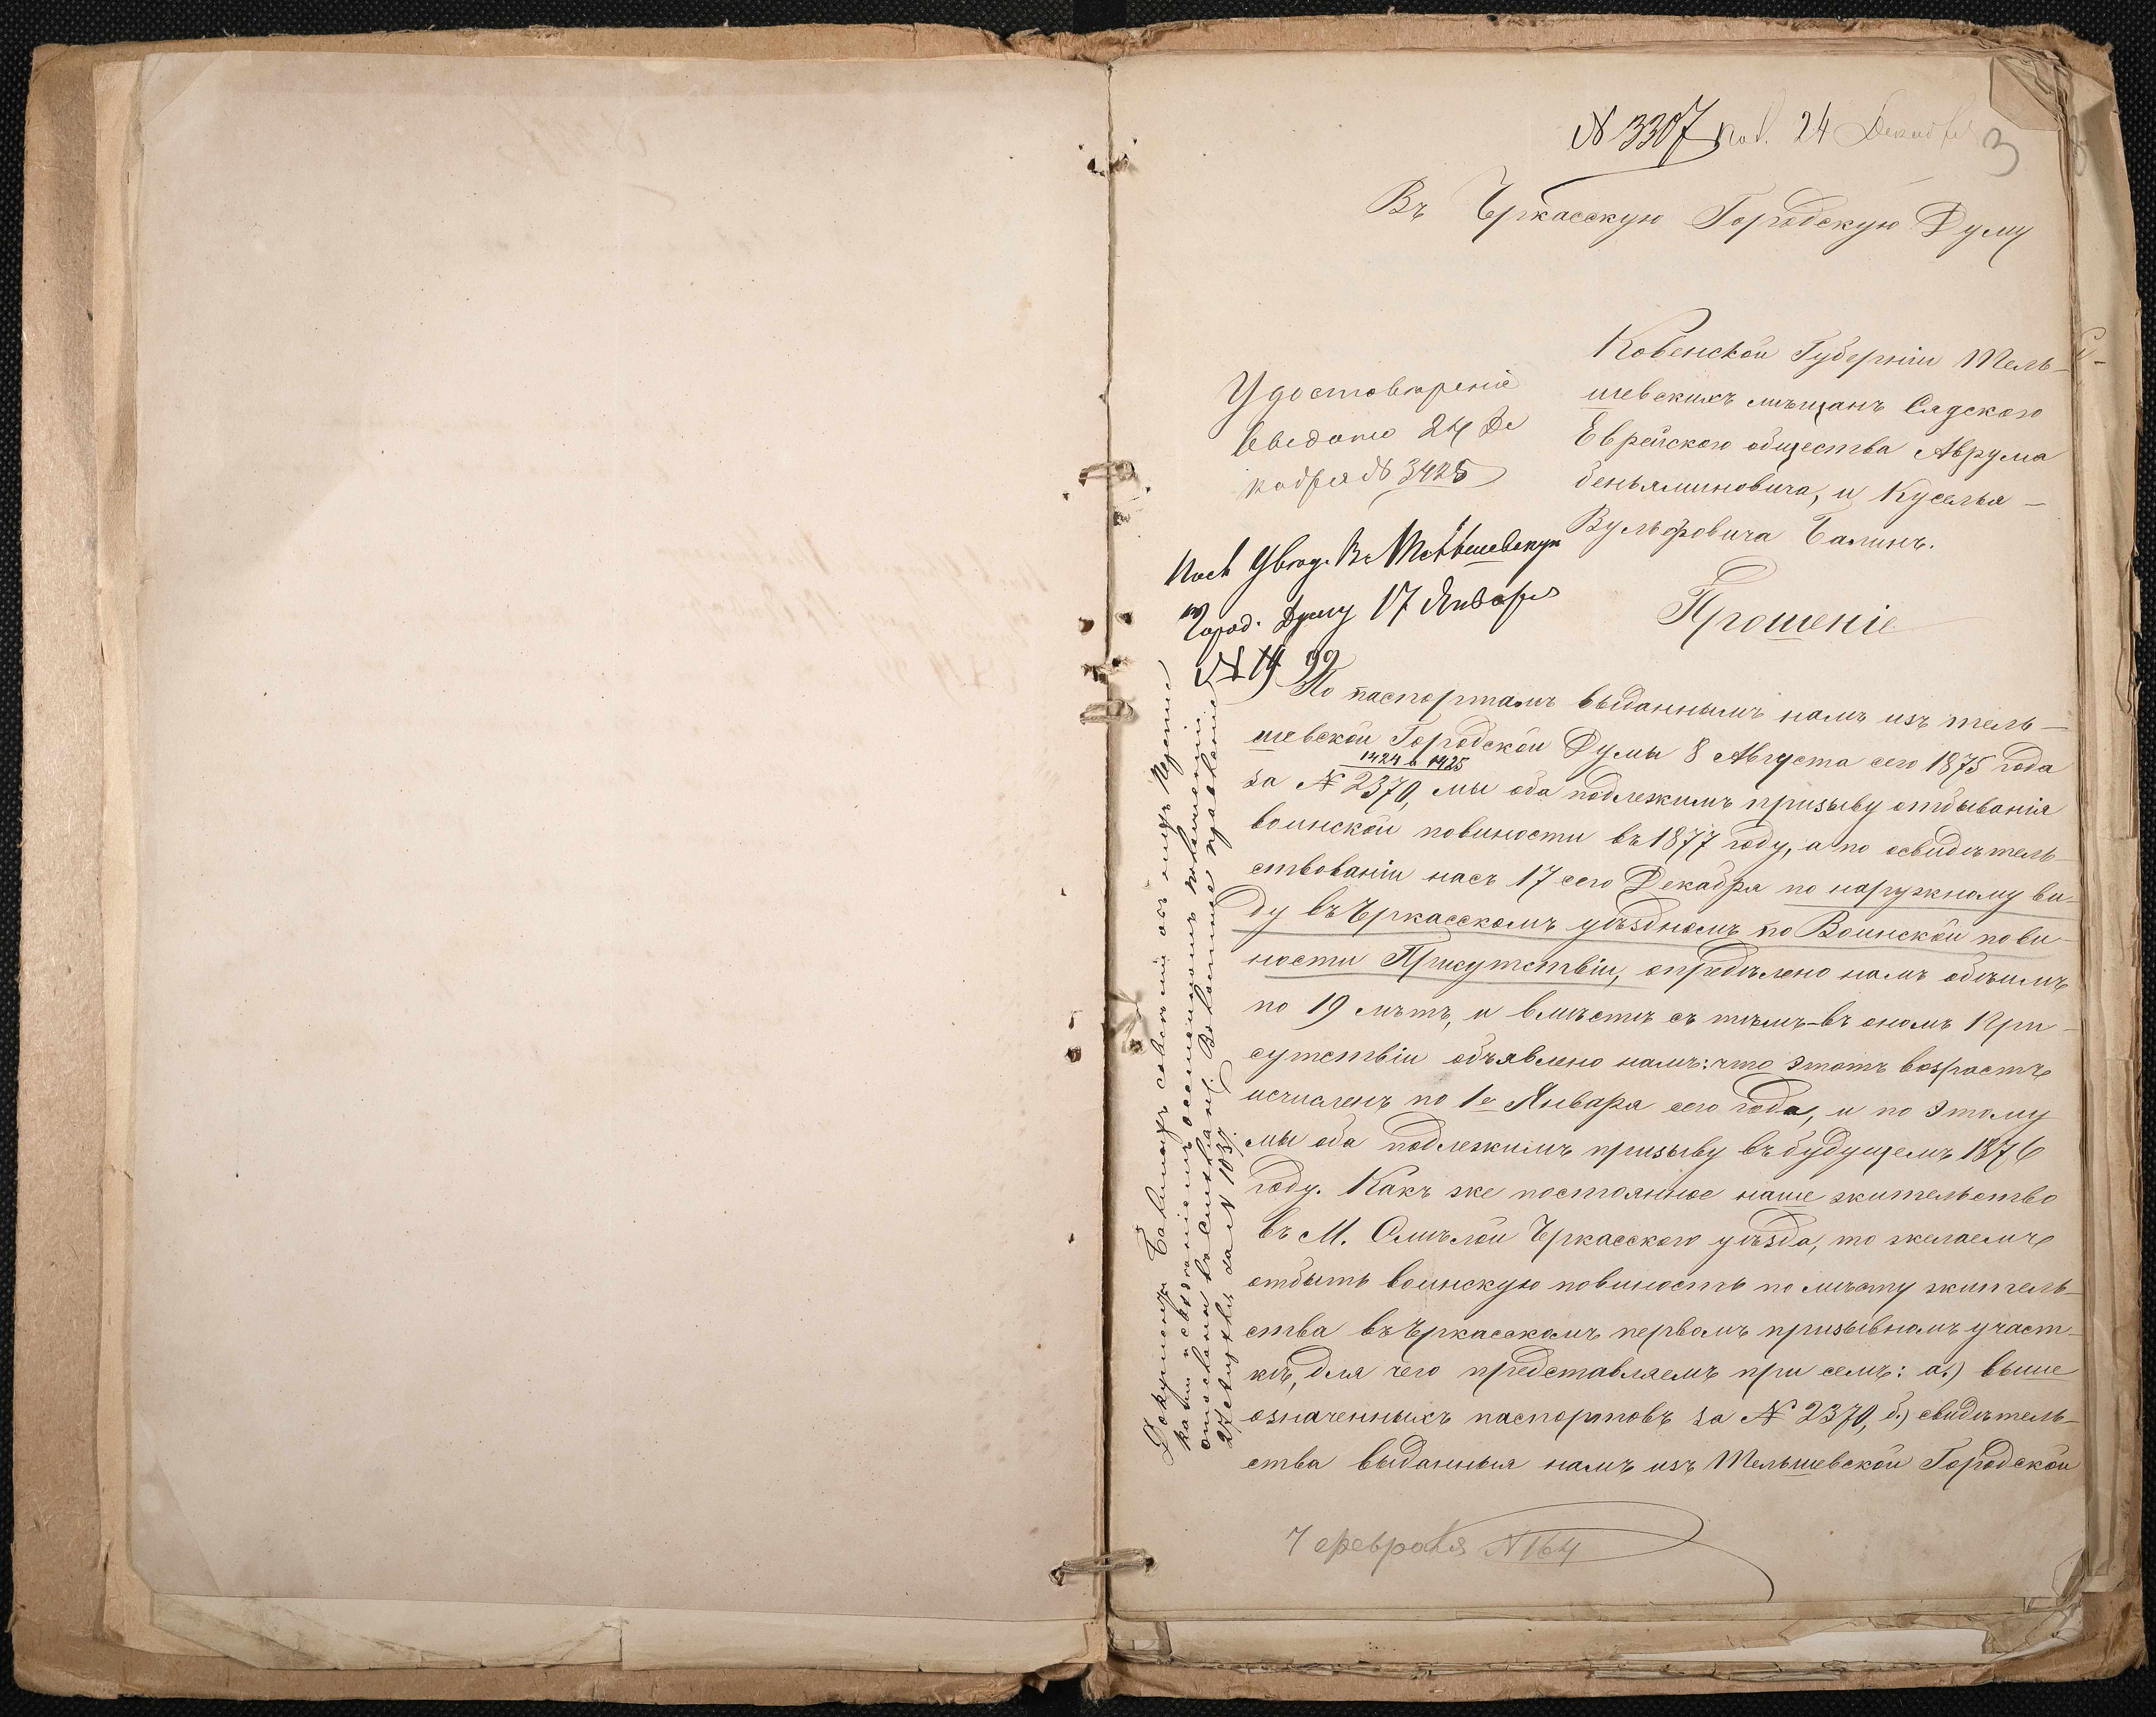 № 3307 пол. 24 Декабря
3
Въ Черкасскую Городскую Думу
Ковенской Губерніи Тель-
шевскихъ мѣщанъ Сядского
Еврейского общества Аврума
беньяминовича, и Куселя
Вульфовича Балинъ.
Прошеніе
Удостовѣреніе
выдано 24 Де
кабря № 3425
Посл. Увѣд. Въ Тельшевскую
Город. Думу 17 Января
№ 99
По паспортамъ выданнымъ намъ изъ тель-
шевской Городской Думы 8 Августа сего 1875 года
1424 и 1425
за № 2370, мы оба подлежимъ призыву отбыванія
воинской повиности въ 1877 году, а по освидѣтель-
ствованіи насъ 17 сего Декабря по наружному ви-
ду въ Черкасскомъ уѣздномъ по Воинской пови-
ности Присутствіи, опредѣлено намъ обѣимъ
по 19 лѣтъ, и вмѣстѣ съ тѣмъ въ ономъ При-
сутствіи объявлено намъ: что этотъ возрастъ
исчисленъ по 1е Января сего года, и по этому
мы оба подлежимъ призыву въ будущемъ 1876
году. Какъ же постоянное наше жительство
въ М. Смѣлой Черкасского уѣзда, то желаемъ
отбыть воинскую повиность по мѣсту житель-
ства въ Черкасскомъ первомъ призывномъ участ-
кѣ, для чего представляемъ при семъ: а.) выше
означенныхъ паспортовъ за № 2370, б.) свидѣтель-
ства выданныя намъ изъ Тельшевской Городской
7 февраля № 164